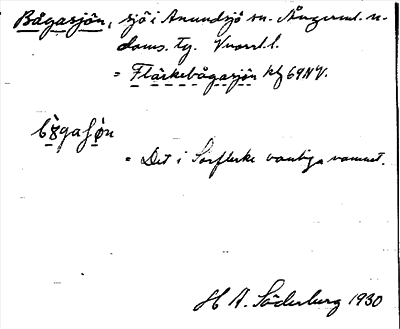 Bågasjön, sjö i Anundsjö sn. Ångerml. n.
doms. tg. Vuorrl.l.
= Flärkebågasjön kbl 69NV.
bǫ̀gaʃø̜n
= Det i Sörflerke vanliga namnet.
H A. Söderberg 1930